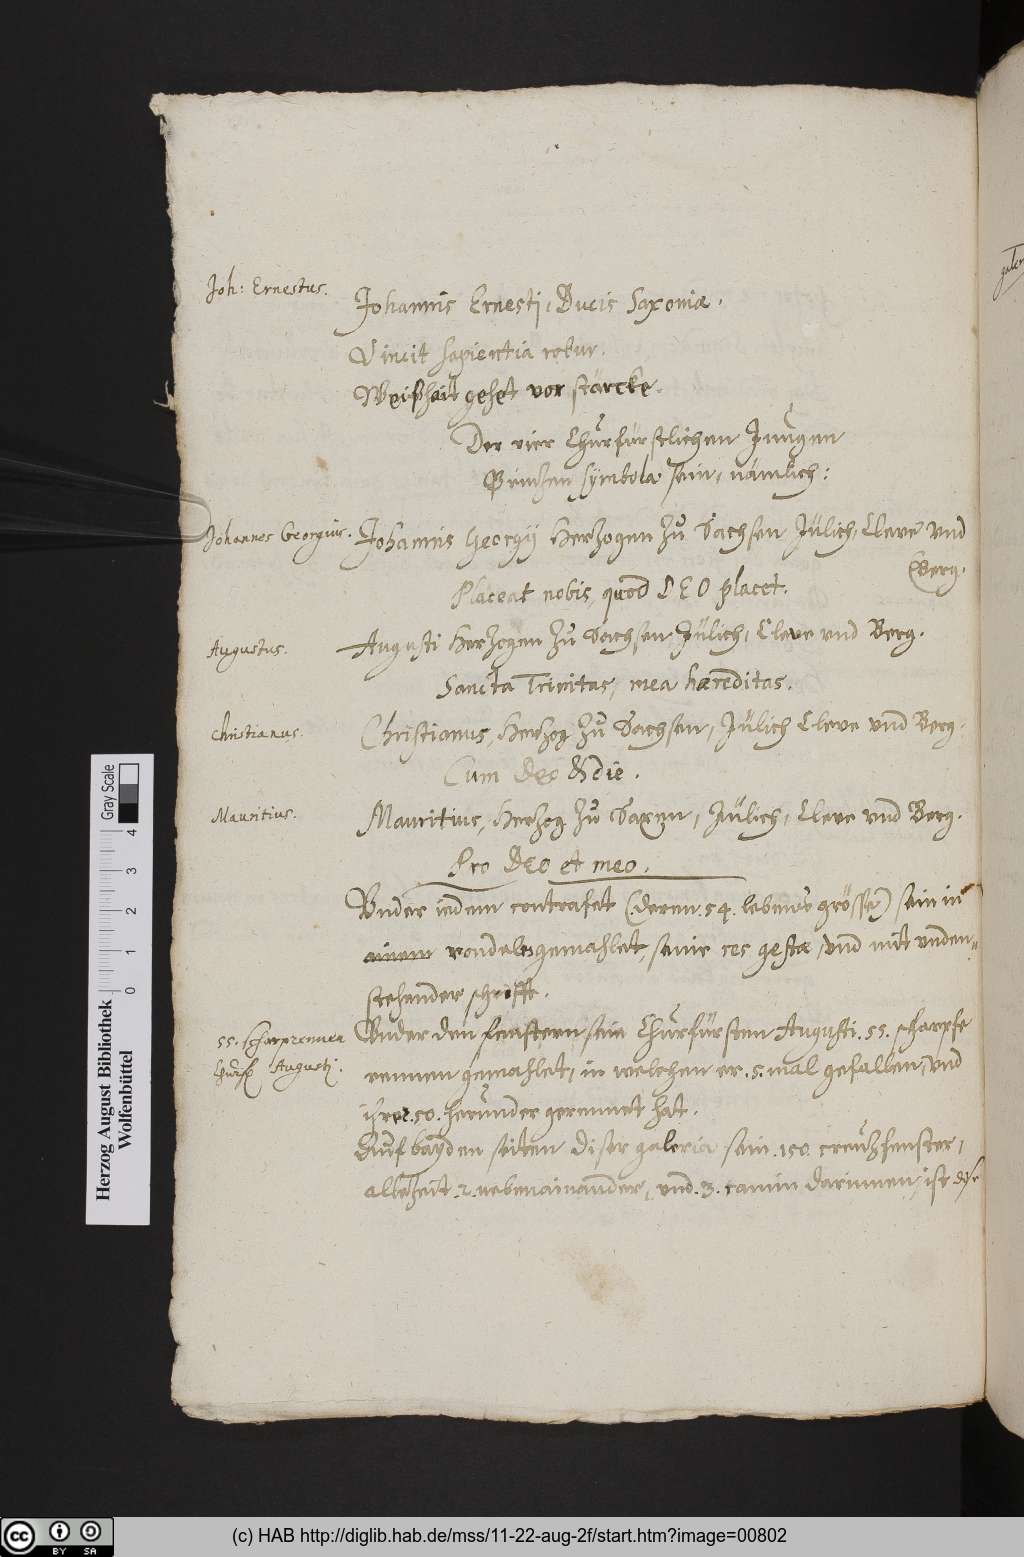 Joh: Ernestus.
Johannis Ernesti, Ducis Saxoniæ.
Vincit sapientia robur.
Weißhait gehet vor stärcke.
Der vier Churfürstlichen Jungen
Printzen symbola sein, nämlich:
Johannes Georgius.
Johannis Georgij Hertzogen zu Sachsen Jülich, Cleve vnd
(Berg.
Placeat nobis, quod DEO placet.
Augustus.
Augusti Hertzogen zu Sachsen Jülich, Cleve vnd Berg.
Sancta Trinitas, mea hæreditas.
Christianus.
Christianus, Hertzog zu Sachsen, Jülich Cleve vnd Berg.
Cum Deo & die.
Mauritius.
Mauritius, Hertzog zu Saxen, Jülich, Cleve vnd Berg.
Pro DEO et meo.
Vnder iedem contrafet (deren .54. lebens grösse) sein in
ainem rondel gemahlet, seine res gestæ, vnd mit vnden-
stehender schrifft.
55. scharprennen
Churf. Augusti.
Vnder den fenstern sein Churfürsten Augusti .55. scharpfe
rennen gemahlet, in welchen er .5. mal gefallen, vnd
ihrer .50. herunder gerennet hat.
Auf bayden seiten diser galeria sein .150. creutzfenster,
allezeit .2. nebenainander, vnd .3. camin darinnen, ist dise
Gray Scale
0 1 2 3 4
Herzog August Bibliothek
Wolfenbüttel
cc BY SA
(c) HAB http://diglib.hab.de/mss/11-22-aug-2f/start.htm?image=00802